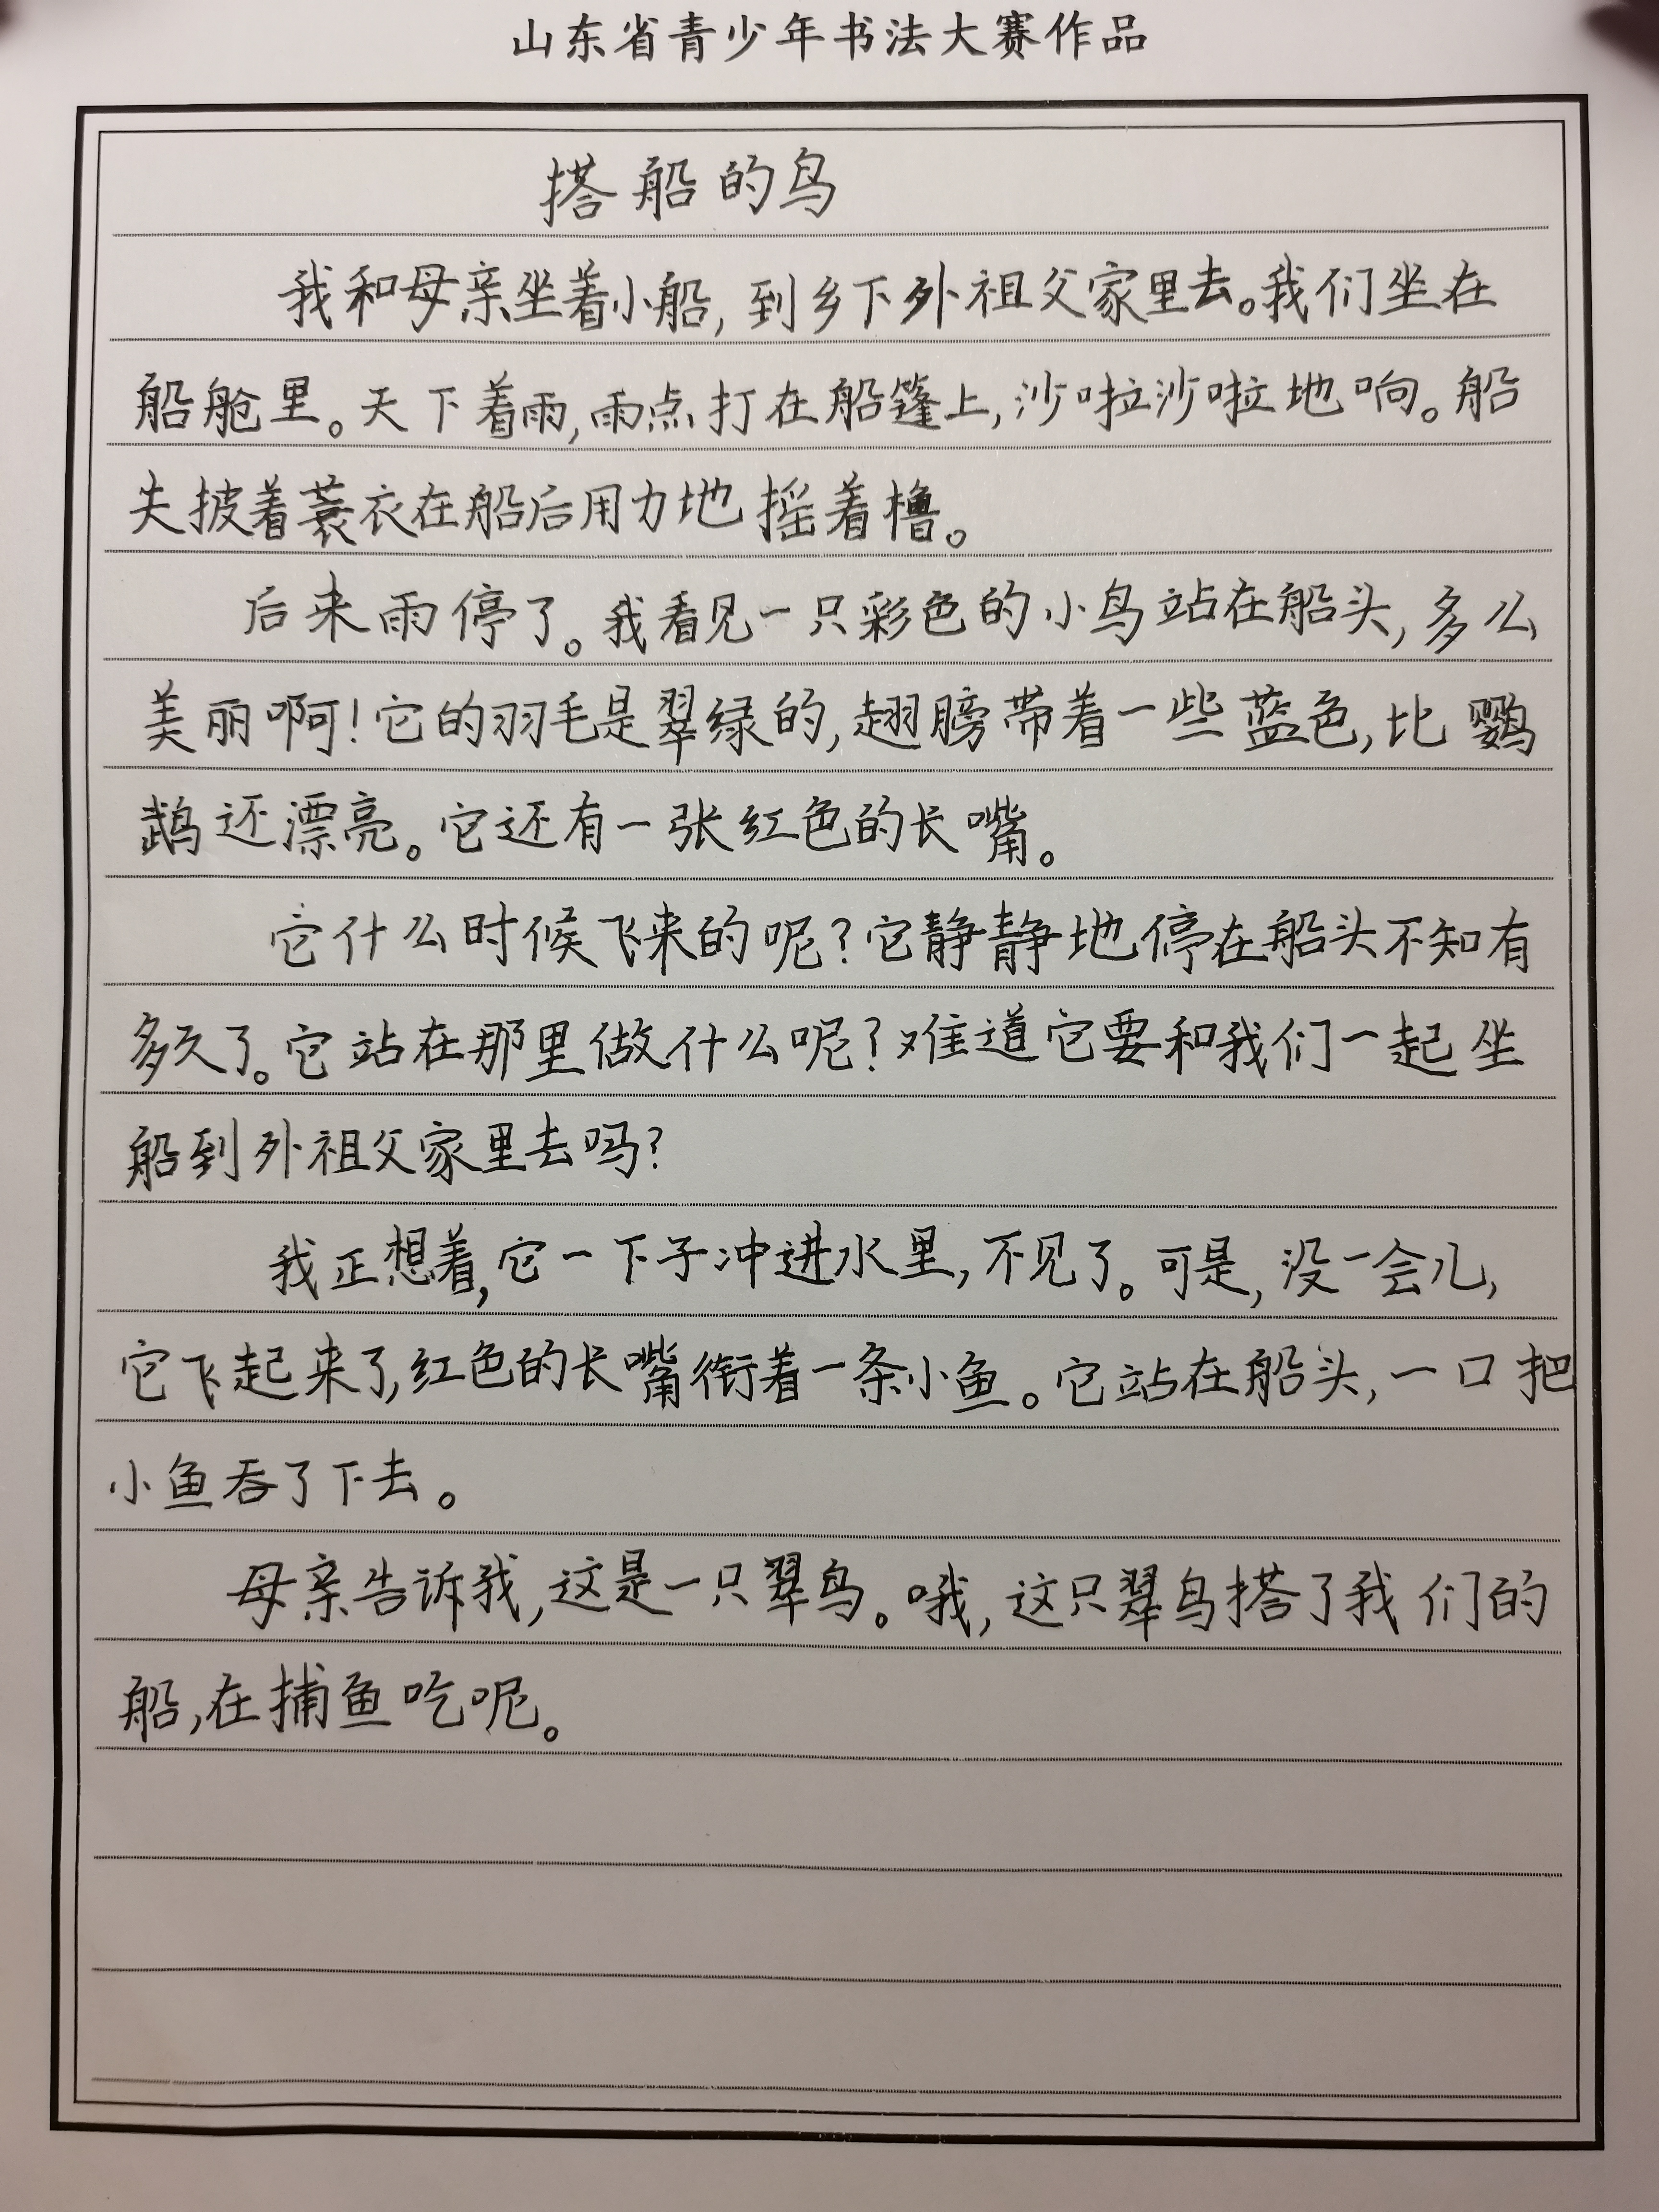 山东省青少年书法大赛作品
搭船的鸟
我和母亲坐着小船，到乡下外祖父家里去。我们坐在
船舱里。天下着雨，雨点打在船篷上，沙啦沙啦地响。船
夫披着蓑衣在船后用力地摇着橹。
后来雨停了。我看见一只彩色的小鸟站在船头，多么
美丽啊！它的羽毛是翠绿的，翅膀带着一些蓝色，比鹦
鹉还漂亮。它还有一张红色的长嘴。
它什么时候飞来的呢？它静静地停在船头不知有
多久了。它站在那里做什么呢？难道它要和我们一起坐
船到外祖父家里去吗？
我正想着，它一下子冲进水里，不见了。可是，没一会儿，
它飞起来了，红色的长嘴衔着一条小鱼。它站在船头，一口把
小鱼吞了下去。
母亲告诉我，这是一只翠鸟。哦，这只翠鸟搭了我们的
船，在捕鱼吃呢。